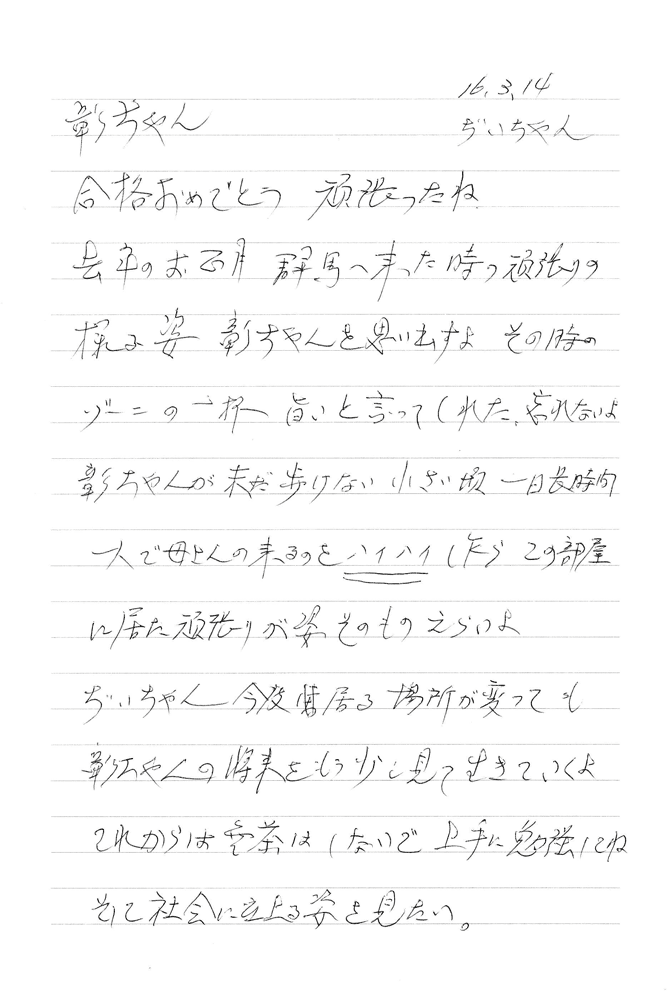 16.3.14
彰ちゃん
ぢいちゃん
合格おめでとう 頑張ったね
去年のお正月 群馬へ来った時の頑張りの
採れる姿 彰ちゃんを思い出すよ その時の
ゾーニの一杯 旨いと言ってくれた、忘れないよ
彰ちゃんが未だ歩けない小さい頃 一日長時間
一人で母さんの来るのをハイハイし乍ら この部屋
に居た頑張りが姿そのもの えらいよ
ぢいちゃん 今後 居る場所が変っても
彰ちゃんの将来をもう少し見て生きていくよ
これからは無茶はしないで 上手に勉強してね
そして社会に立上る姿を見たい。